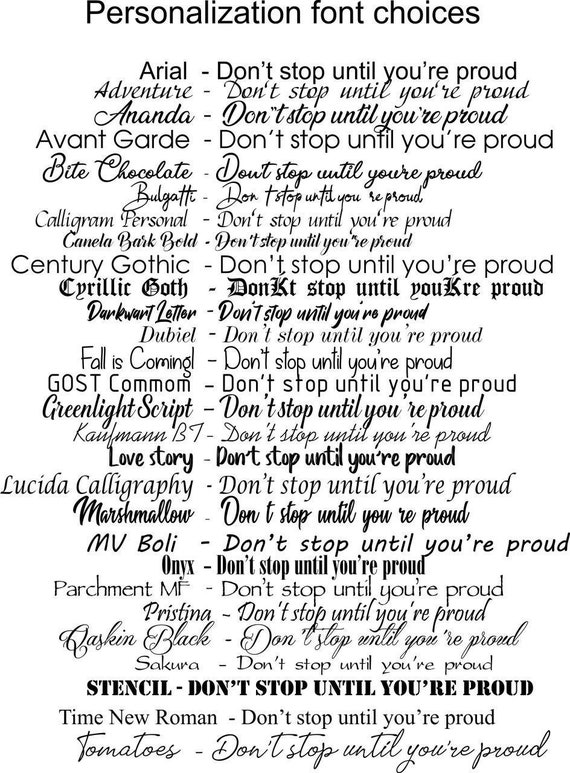 Personalization font choices
Arial - Don't stop until you're proud
Adventure - Don't stop until you're proud
Ananda - Don"t stop until you're proud
Avant Garde - Don't stop until you're proud
Bite Chocolate - Don't stop until you're proud
Bulgatti - Don t stop until you re proud
Calligram Personal - Don't stop until you're proud
Canela Bark Bold - Don't stop until you're proud
Century Gothic - Don't stop until you're proud
Cyrillic Goth - DonKt stop until youKre proud
Darkwart Letter - Don't stop until you're proud
Dubiel - Don't stop until you're proud
Fall is Coming! - Don't stop until you're proud
GOST Commom - Don't stop until you're proud
Greenlight Script - Don't stop until you're proud
Kaufmann BT - Don't stop until you're proud
Love story - Don't stop until you're proud
Lucida Calligraphy - Don't stop until you're proud
Marshmallow - Don t stop until you re proud
MV Boli - Don't stop until you're proud
Onyx - Don't stop until you're proud
Parchment MF - Don't stop until you're proud
Pristina - Don't stop until you're proud
Qaskin Black - Don't stop until you're proud
Sakura - Don't stop until you're proud
STENCIL - DON'T STOP UNTIL YOU'RE PROUD
Time New Roman - Don't stop until you're proud
Tomatoes - Don't stop until you're proud